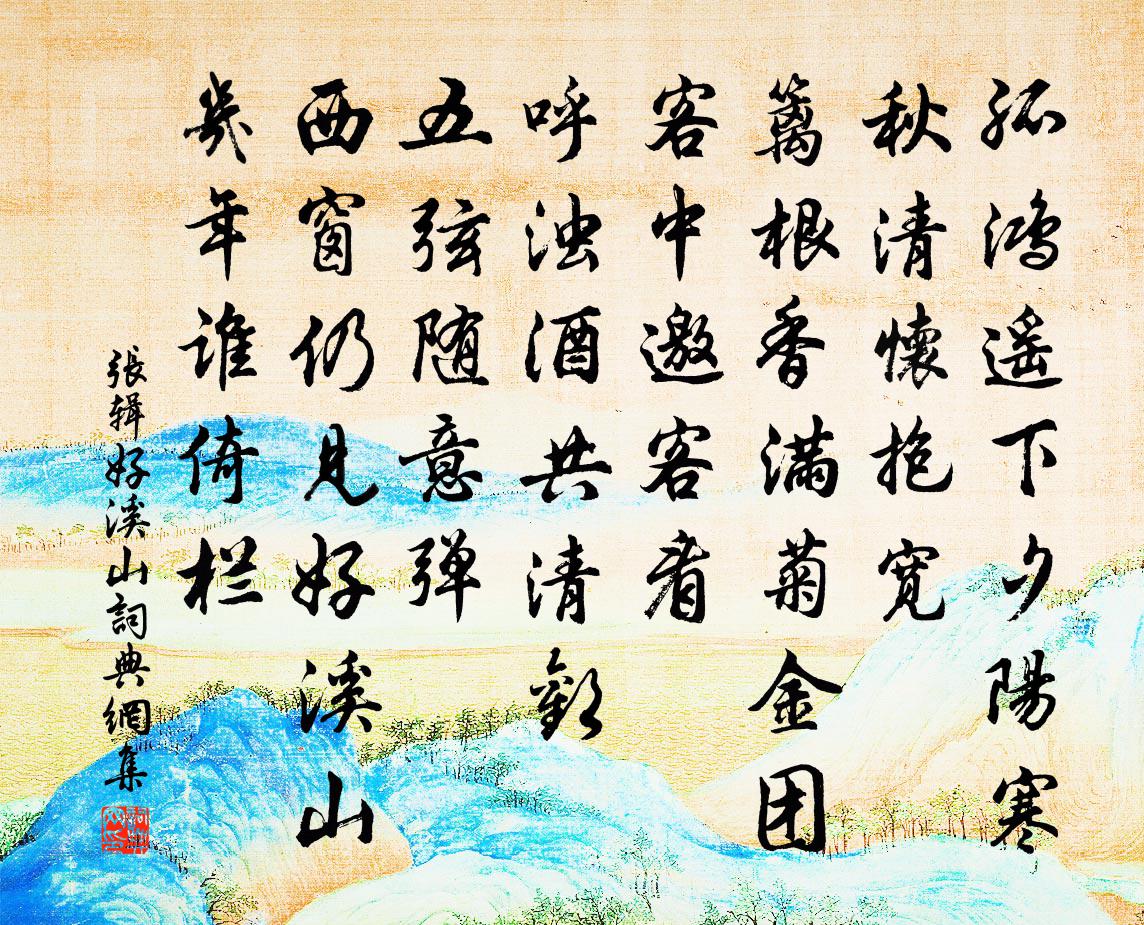 孤鸿遥下夕陽寒
秋清懷抱寬
篱根香滿菊金团
客中邀客看
呼浊酒共清歡
五弦随意弹
西窗仍见好溪山
幾年誰倚栏
張辑好溪山詞典網集